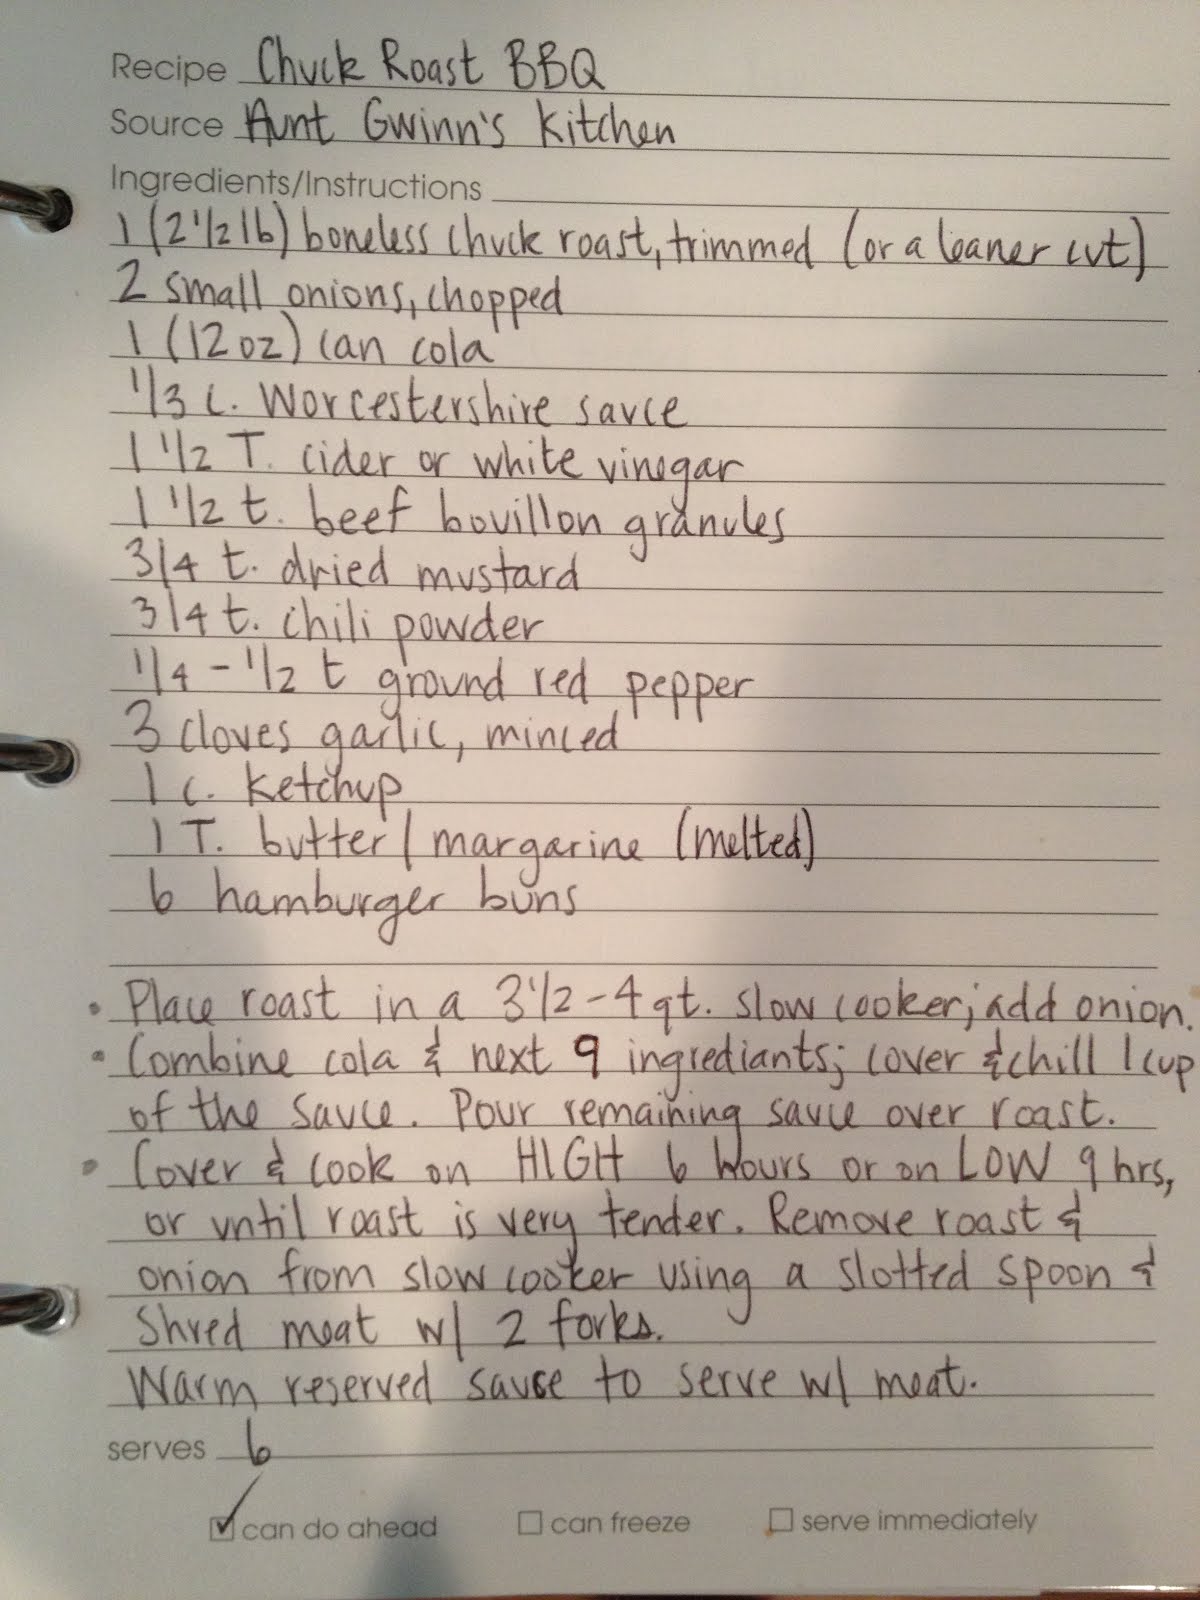 Recipe Chuck Roast BBQ
Source Aunt Gwinn's Kitchen
Ingredients/Instructions
1 (2 1/2 lb) boneless chuck roast, trimmed (or a leaner cut)
2 small onions, chopped
1 (12 oz) can cola
1/3 c. Worcestershire sauce
1 1/2 T. cider or white vinegar
1 1/2 t. beef bouillon granules
3/4 t. dried mustard
3/4 t. chili powder
1/4 - 1/2 t ground red pepper
3 cloves garlic, minced
1 c. Ketchup
1 T. butter/margarine (melted)
6 hamburger buns
• Place roast in a 3 1/2 - 4 qt. slow cooker; add onion.
• Combine cola & next 9 ingrediants; cover & chill 1 cup
of the sauce. Pour remaining sauce over roast.
• Cover & cook on HIGH 6 hours or on LOW 9 hrs,
or until roast is very tender. Remove roast &
onion from slow cooker using a slotted spoon &
Shred meat w/ 2 forks.
Warm reserved sauce to serve w/ meat.
serves 6
can do ahead can freeze serve immediately